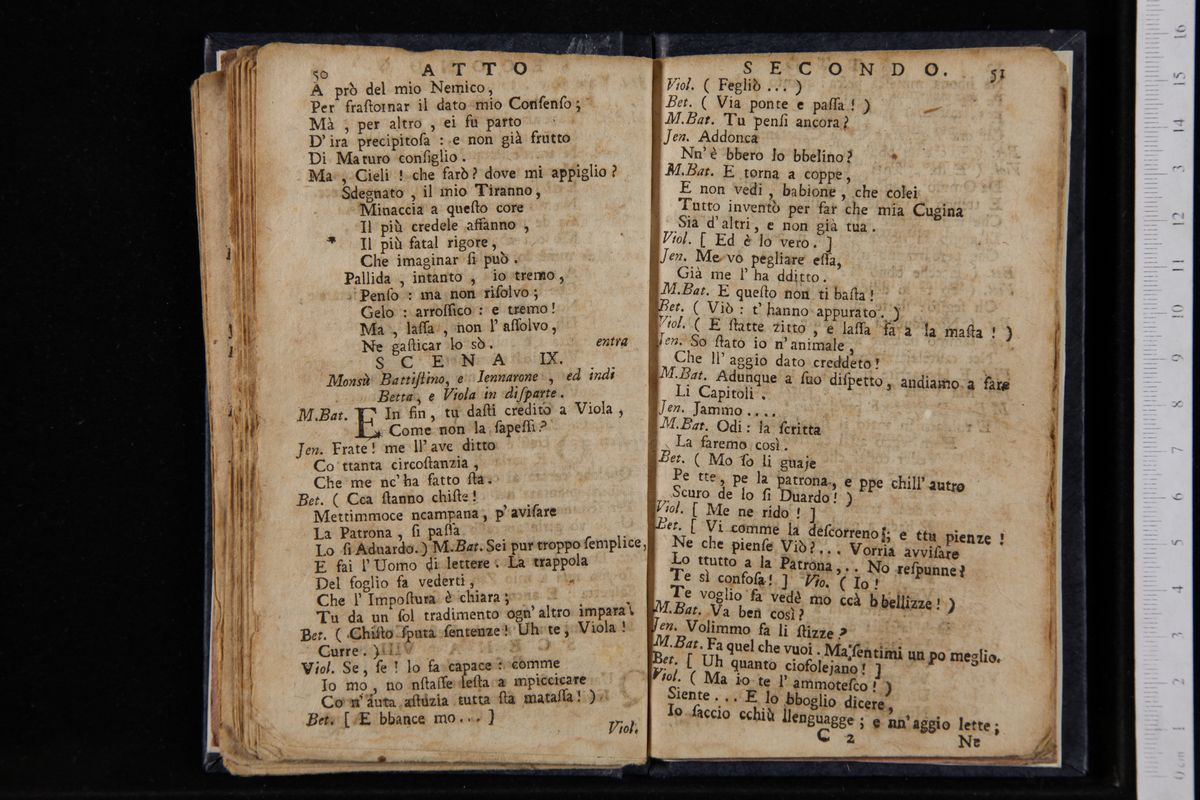 50 ATTO
A prò del mio Nemico,
Per fraſtornar il dato mio Conſenſo;
Mà, per altro, ei fu parto
D'ira precipitoſa: e non già frutto
Di Maturo conſiglio.
Ma, Cieli! che farò? dove mi appiglio?
Sdegnato, il mio Tiranno,
Minaccia a queſto core
Il più credele affanno,
Il più fatal rigore,
Che imaginar ſi può.
Pallida, intanto, io tremo,
Penſo: ma non riſolvo;
Gelo: arroſſico: e tremo!
Ma, laſſa, non l'aſſolvo,
Ne gaſticar lo sò. entra
SCENA IX.
Monsù Battiſtino, e Iennarone, ed indi
Betta, e Viola in diſparte.
M.Bat. EIn fin, tu daſti credito a Viola,
Come non la ſapeſſi?
Jen. Frate! me ll'ave ditto
Co ttanta circoſtanzia,
Che me nc'ha fatto ſta.
Bet. (Cca ſtanno chiſte!
Mettimmoce ncampana, p'aviſare
La Patrona, ſi paſſa
Lo ſi Aduardo.) M.Bat. Sei pur troppo ſemplice,
E fai l'Uomo di lettere. La trappola
Del foglio fa vederti,
Che l'Impoſtura è chiara;
Tu da un ſol tradimento ogn'altro impara.
Bet. (Chiſto ſputa ſentenze! Uh te, Viola!
Curre.)
Viol. Se, ſe! lo fa capace: comme
Io mo, no nſtaſſe leſta a mpiccicare
Co n'auta aſtuzia tutta ſta mataſſa!)
Bet. [E bbance mo...]
Viol.
SECONDO. 51
Viol. (Fegliò...)
Bet. (Via ponte e paſſa!)
M.Bat. Tu penſi ancora?
Jen. Addonca
Nn'è bbero lo bbelino?
M.Bat. E torna a coppe,
E non vedi, babione, che colei
Tutto inventò per far che mia Cugina
Sia d'altri, e non già tua.
Viol. [Ed è lo vero.]
Jen. Me vo pegliare eſſa,
Già me l'ha dditto.
M.Bat. E queſto non ti baſta!
Bet. (Viò: t'hanno appurato.)
Viol. (E ſtatte zitto, e laſſa fa a la maſta!)
Jen. So ſtato io n'animale,
Che ll'aggio dato creddeto!
M.Bat. Adunque a ſuo diſpetto, andiamo a fare
Li Capitoli.
Jen. Jammo....
M.Bat. Odi: la ſcritta
La faremo così.
Bet. (Mo ſo li guaje
Pe tte, pe la patrona, e ppe chill'autro
Scuro de lo ſi Duardo!)
Viol. [Me ne rido!]
Bet. [Vi comme la deſcorreno!; e ttu pienze!
Ne che pienſe Viò?... Vorria avviſare
Lo ttutto a la Patrona,.. No reſpunne?
Te sì confoſa!] Vio. (Io!
Te voglio fa vedè mo ccà bbellizze!)
M.Bat. Va ben così?
Jen. Volimmo fa li ſtizze?
M.Bat. Fa quel che vuoi. Ma, ſentimi un po meglio.
Bet. [Uh quanto ciofolejano!]
Viol. (Ma io te l'ammoteſco!)
Siente... E lo bboglio dicere,
Io faccio cchiù llenguagge; e nn'aggio lette;
C 2 Ne